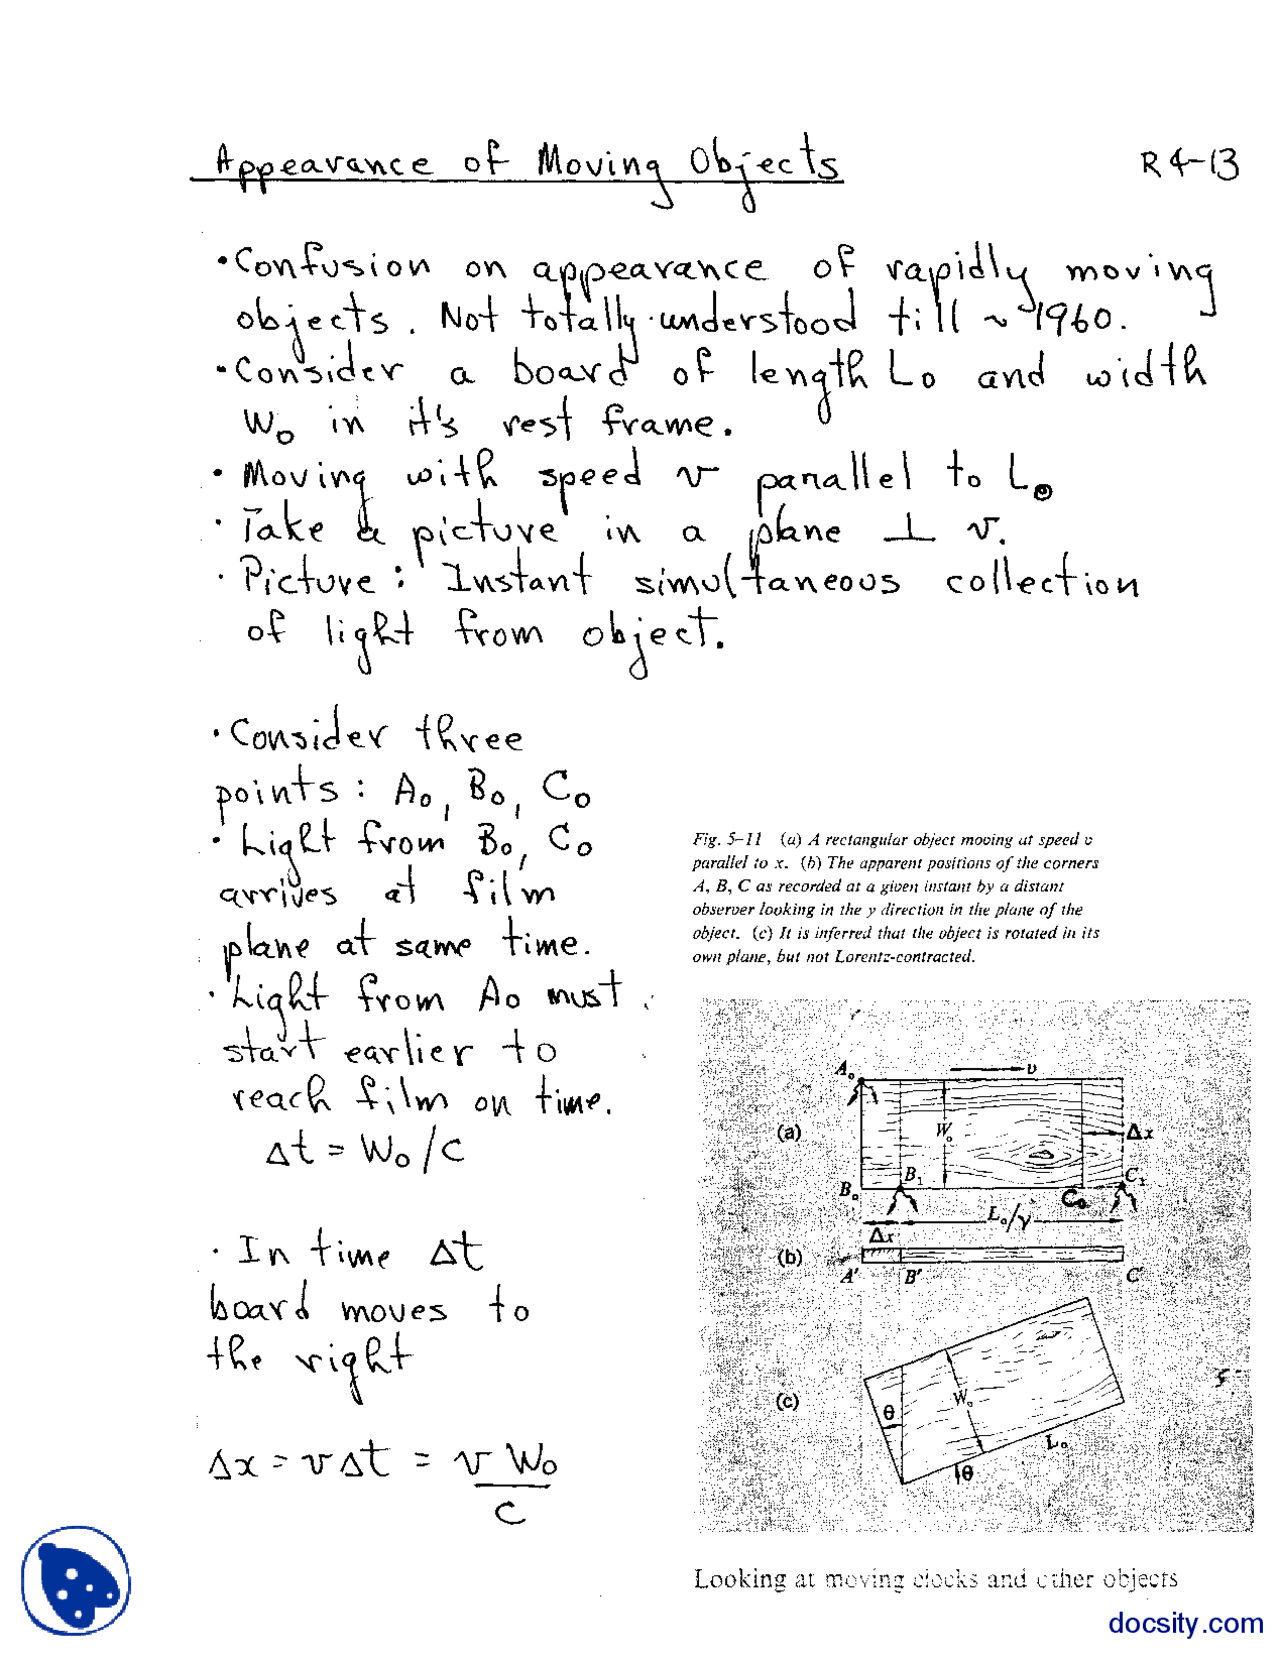 Appearance of Moving Objects R4-13
• Confusion on appearance of rapidly moving
objects. Not totally understood till ~ 1960.
• Consider a board of length L₀ and width
W₀ in it's rest frame.
• Moving with speed v parallel to L₀
• Take a picture in a plane ⊥ v.
• Picture: Instant simultaneous collection
of light from object.
• Consider three
points: A₀, B₀, C₀
• Light from B₀, C₀
arrives at film
plane at same time.
• Light from A₀ must
start earlier to
reach film on time.
Δt = W₀/c
• In time Δt
board moves to
the right
Δx = vΔt = v W₀
c
Fig. 5-11 (a) A rectangular object moving at speed v
parallel to x. (b) The apparent positions of the corners
A, B, C as recorded at a given instant by a distant
observer looking in the y direction in the plane of the
object. (c) It is inferred that the object is rotated in its
own plane, but not Lorentz-contracted.
A₀ v
(a) W₀ Δx
B₀ B₁ C₀ C₁
L₀/γ
Δx
(b)
A' B' C'
(c) θ W₀
L₀
θ
Looking at moving clocks and other objects
docsity.com